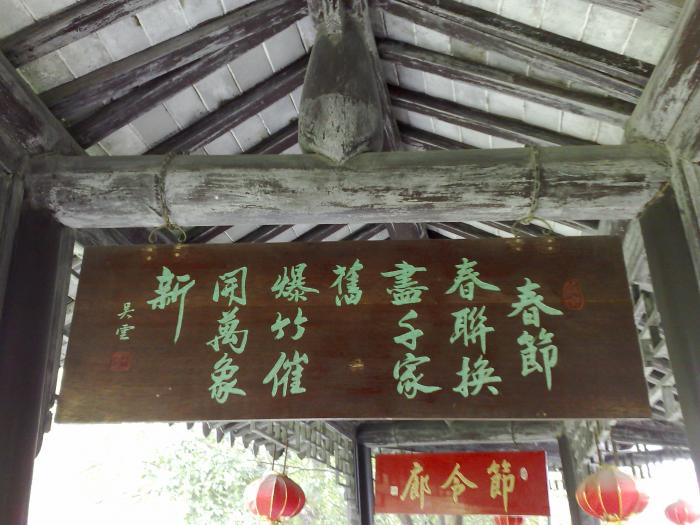 春節
春聯換
盡千家
舊
爆竹催
開萬象
新
吳雲
節令廊